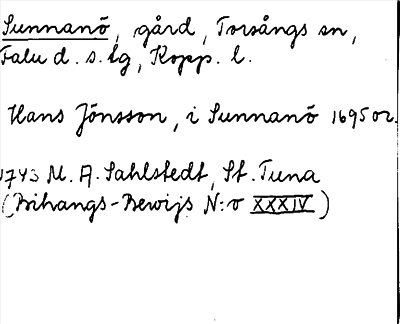 Sunnanö, gård, Torsångs sn,
Falu d. s. lg, Kopp. l.
Hans Jönsson, i Sunnanö 1695 or.
1743 M. A. Sahlstedt, St. Tuna
(Bihangs-Bewijs N:o XXXIV)